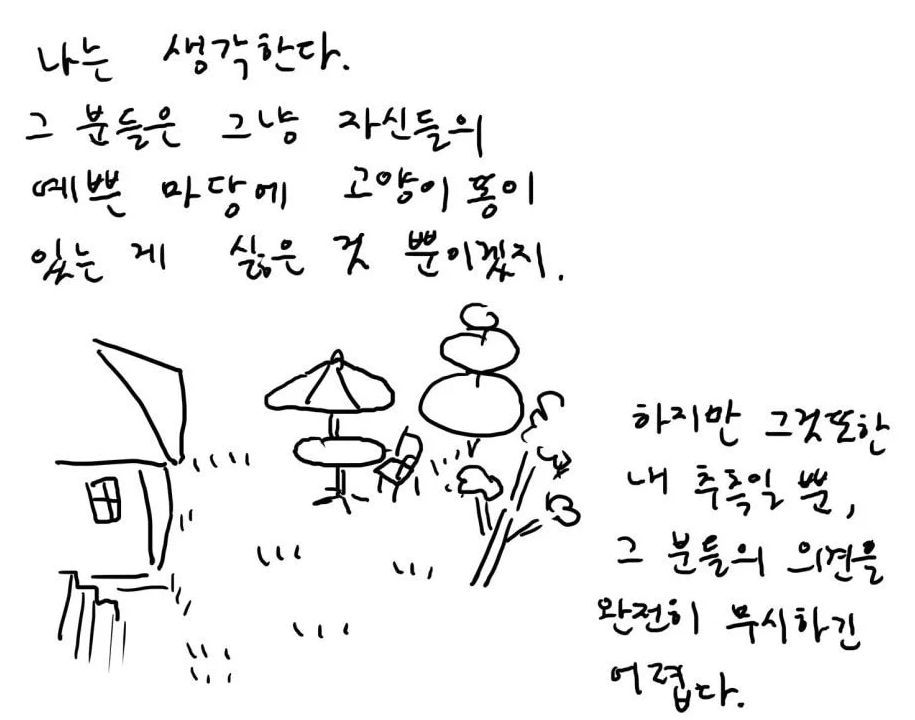 나는 생각한다.
그 분들은 그냥 자신들의
예쁜 마당에 고양이 똥이
있는 게 싫은 것 뿐이겠지.
하지만 그것또한
내 추측일 뿐,
그 분들의 의견을
완전히 무시하긴
어렵다.